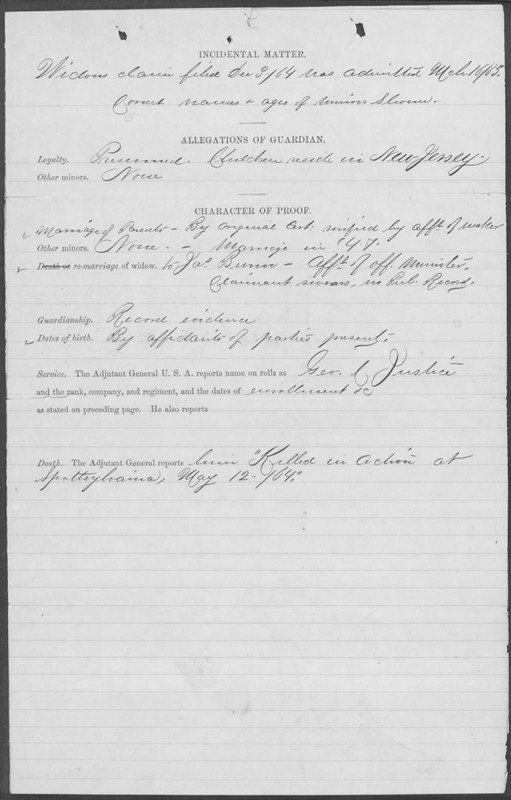 INCIDENTAL MATTER.
Widows claim filed Dec 3/64 was admitted Mch 16/65.
Correct names + ages of minors Shown.
ALLEGATIONS OF GUARDIAN.
Loyalty. Presumed. Children reside in New Jersey.
Other minors. None
CHARACTER OF PROOF.
Marriage of Parents - By original Cert. verified by afft of maker
Other minors. None. - Marriage in '47.
Death or re-marriage of widow. to Jas Bunn - Afft of off. Minister.
Claimant swears, no Pub. Record.
Guardianship. Record evidence
Dates of birth. By affidavits of parties present.
Service. The Adjutant General U. S. A. reports name on rolls as Geo. C Justice
and the rank, company, and regiment, and the dates of enrollment &c
as stated on preceding page. He also reports
Death. The Adjutant General reports him "Killed in action at
Spottsylvania, May 12-/64."